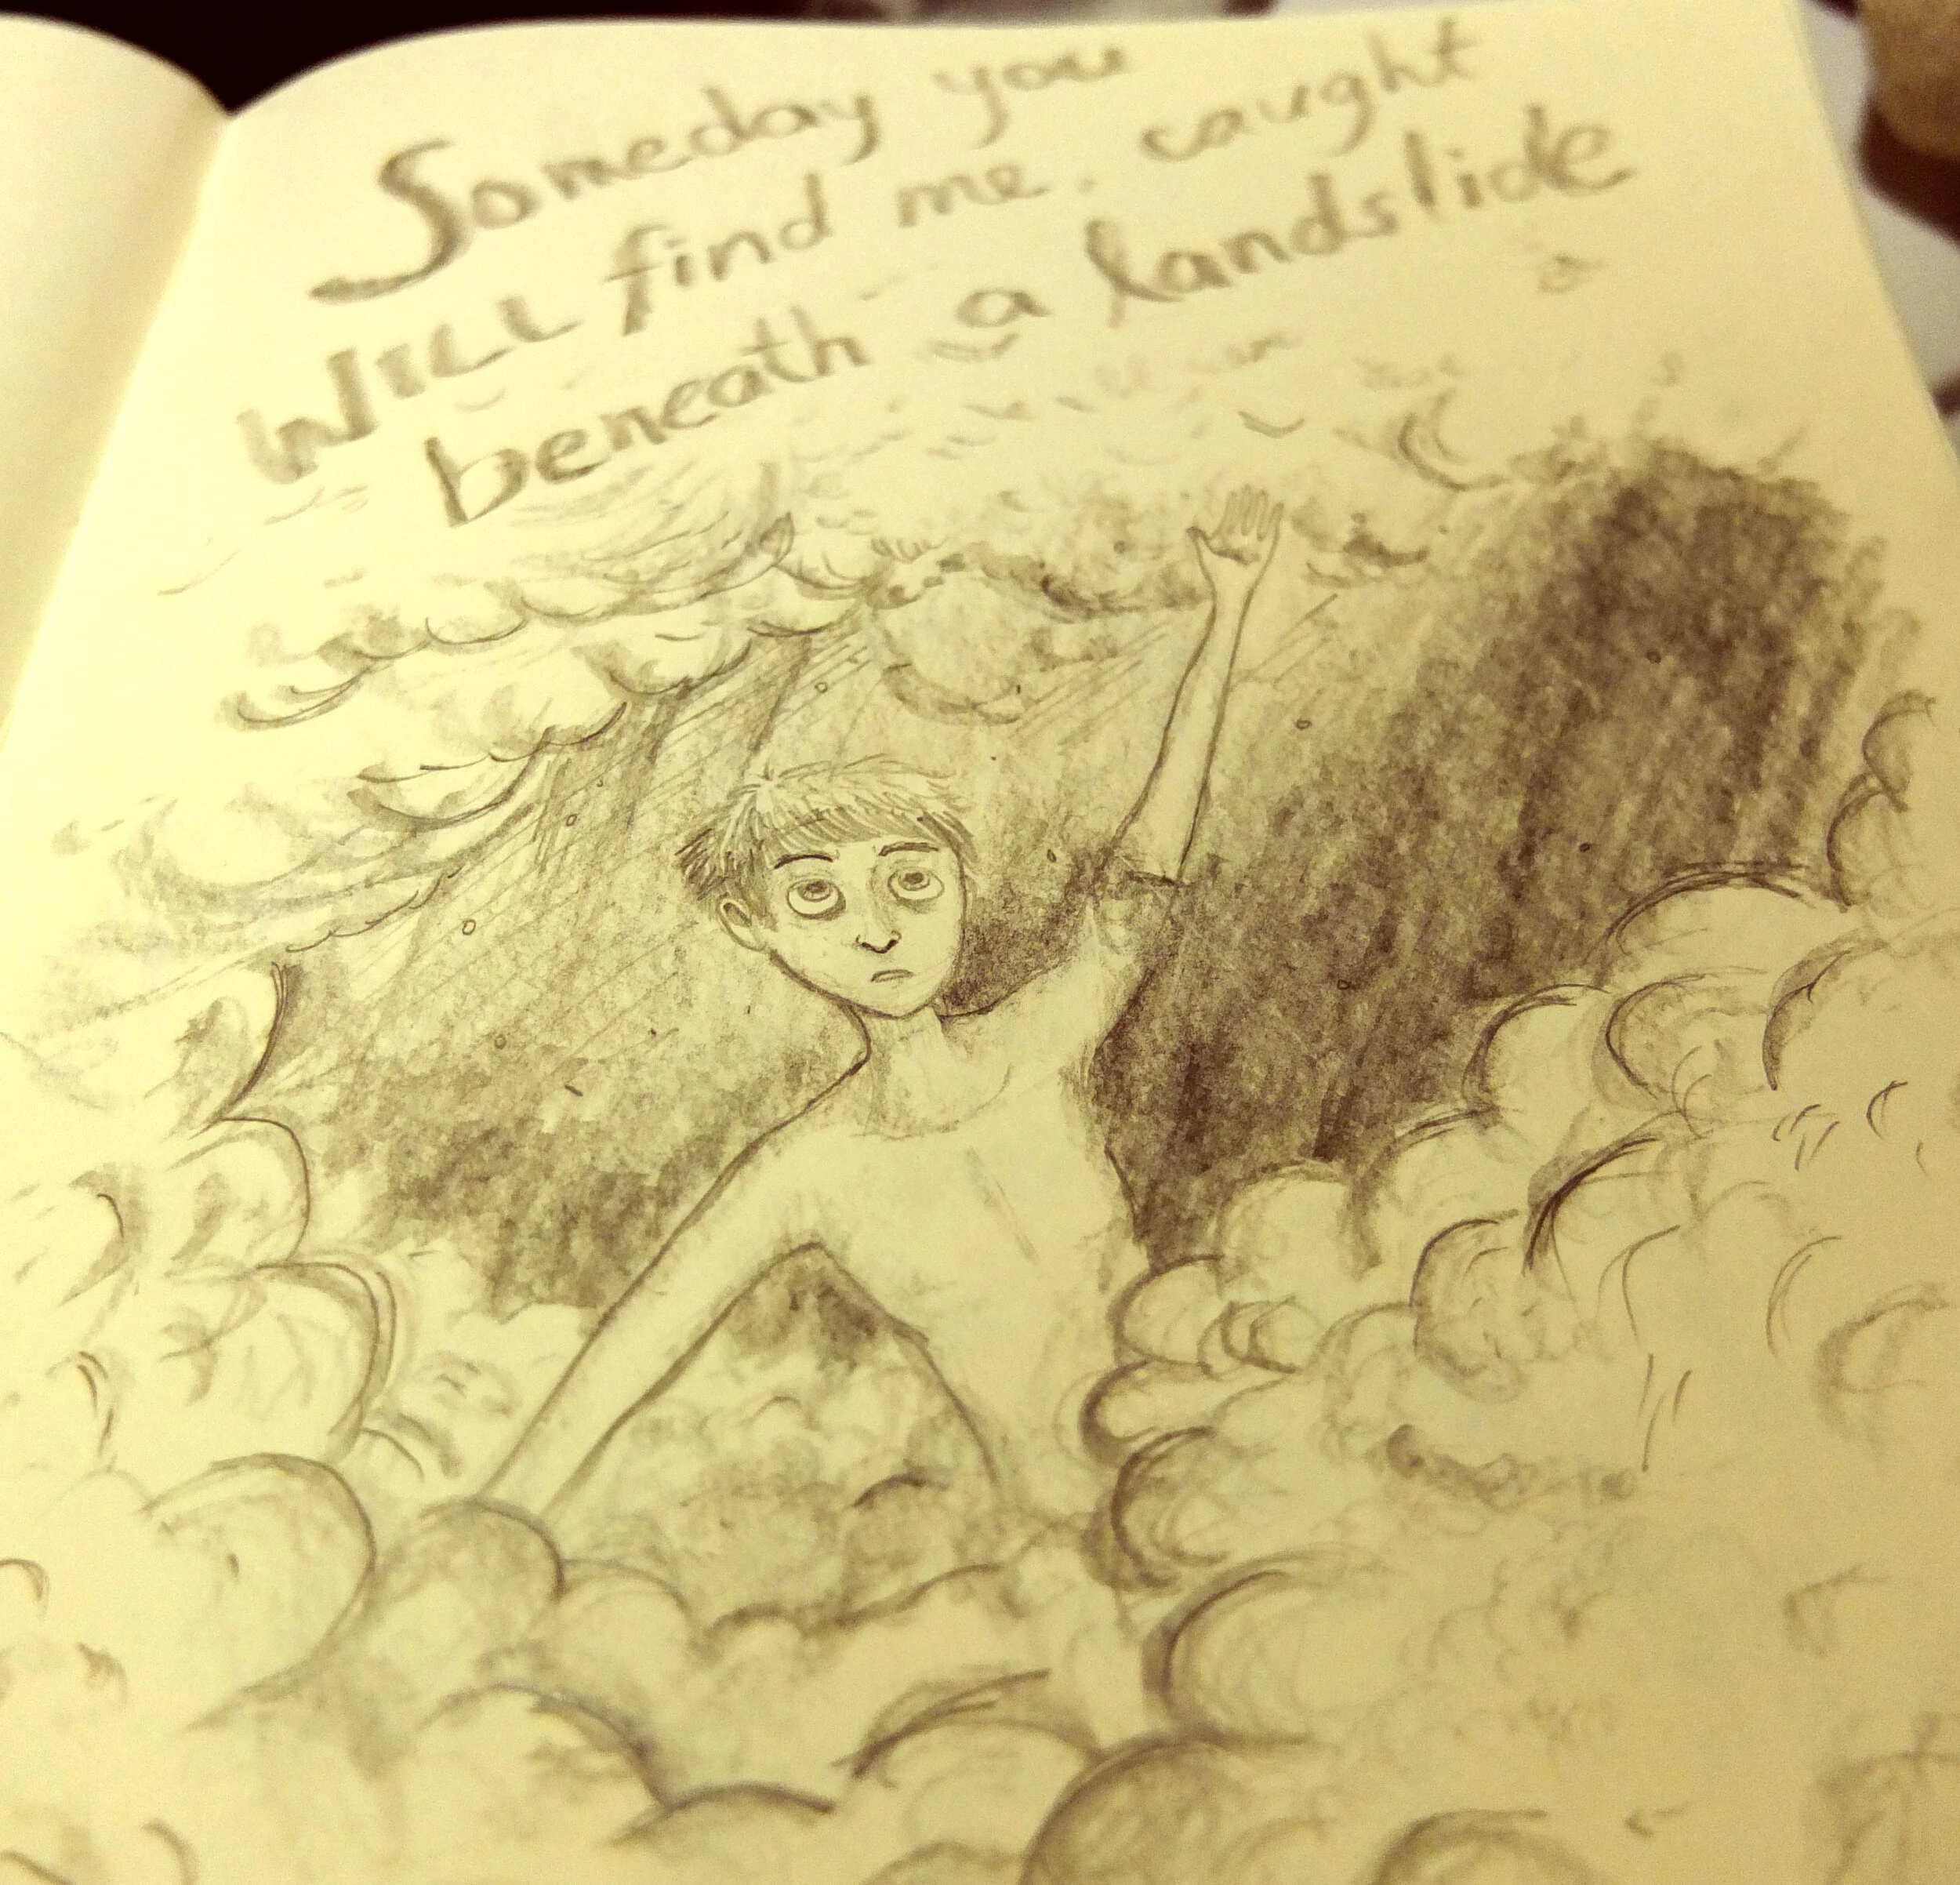 Someday you
WILL find me. caught
beneath a landslide